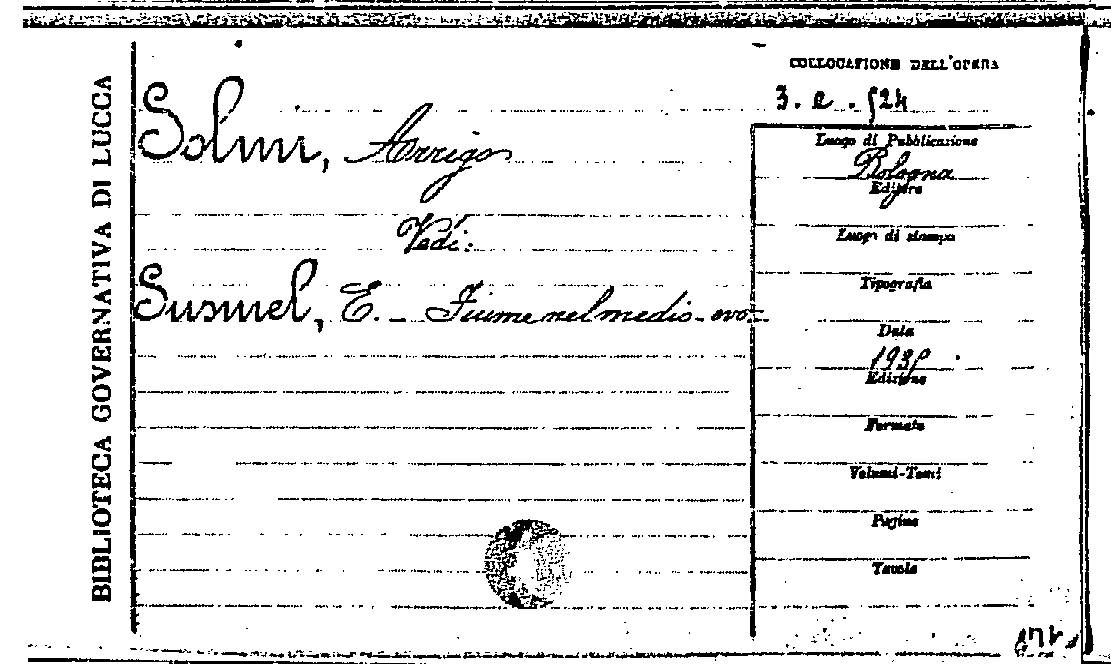 BIBLIOTECA GOVERNATIVA DI LUCCA
COLLOCAZIONE DELL'OPERA
3. a . 524
Solmi, Arrigo
Vedi:
Susmel, E. - Fiume nel medio-evo-
Luogo di Pubblicazione
Bologna
Editore
Luogo di stampa
Tipografia
Data
Edizione
Formato
Volumi-Tomi
Pagine
Tavole